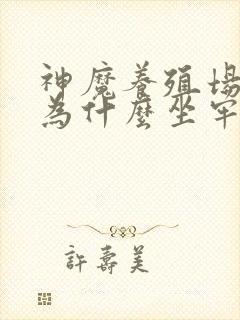 神魔養殖場
為什麼坐牢
許壽美